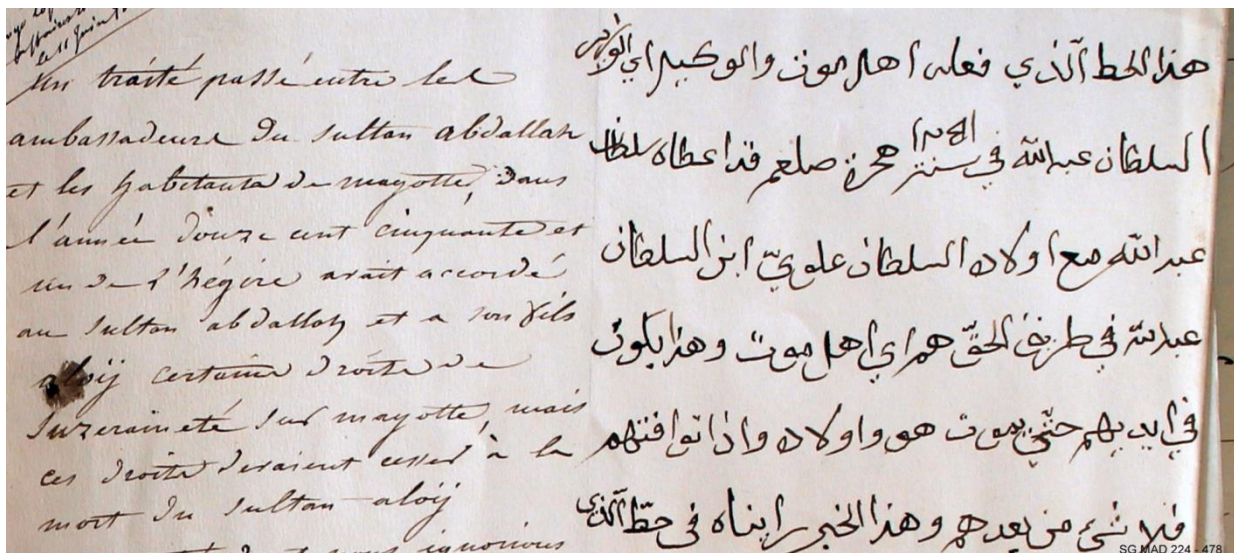 le 11 juin
Un traité passé entre les
ambassadeurs du sultan abdallah
et les habitants de mayotte, dans
l'année douze cent cinquante et
un de l'hégire avait accordé
au sultan abdallah et a son fils
aloij certains droits de
suzeraineté sur mayotte, mais
ces droits devaient cesser à la
mort du sultan aloij
ignorions
هذا الخط الّذي فعله اهل موت والوكيل اي الوزير
السلطان عبد الله في سنة هجرة صلعم قد اعطاه سلطان
عبد الله مع اولاده السلطان علويّ ابن السلطان
عبد الله في طريق الحقّ هم اي اهل موت وهذا يكون
في ايديهم حتّي يموت هو واولاده واذا توافتهم
فلا شئ من بعدهم وهذا الخبر رايناه في خطّ الّذي
SG MAD 224 - 478